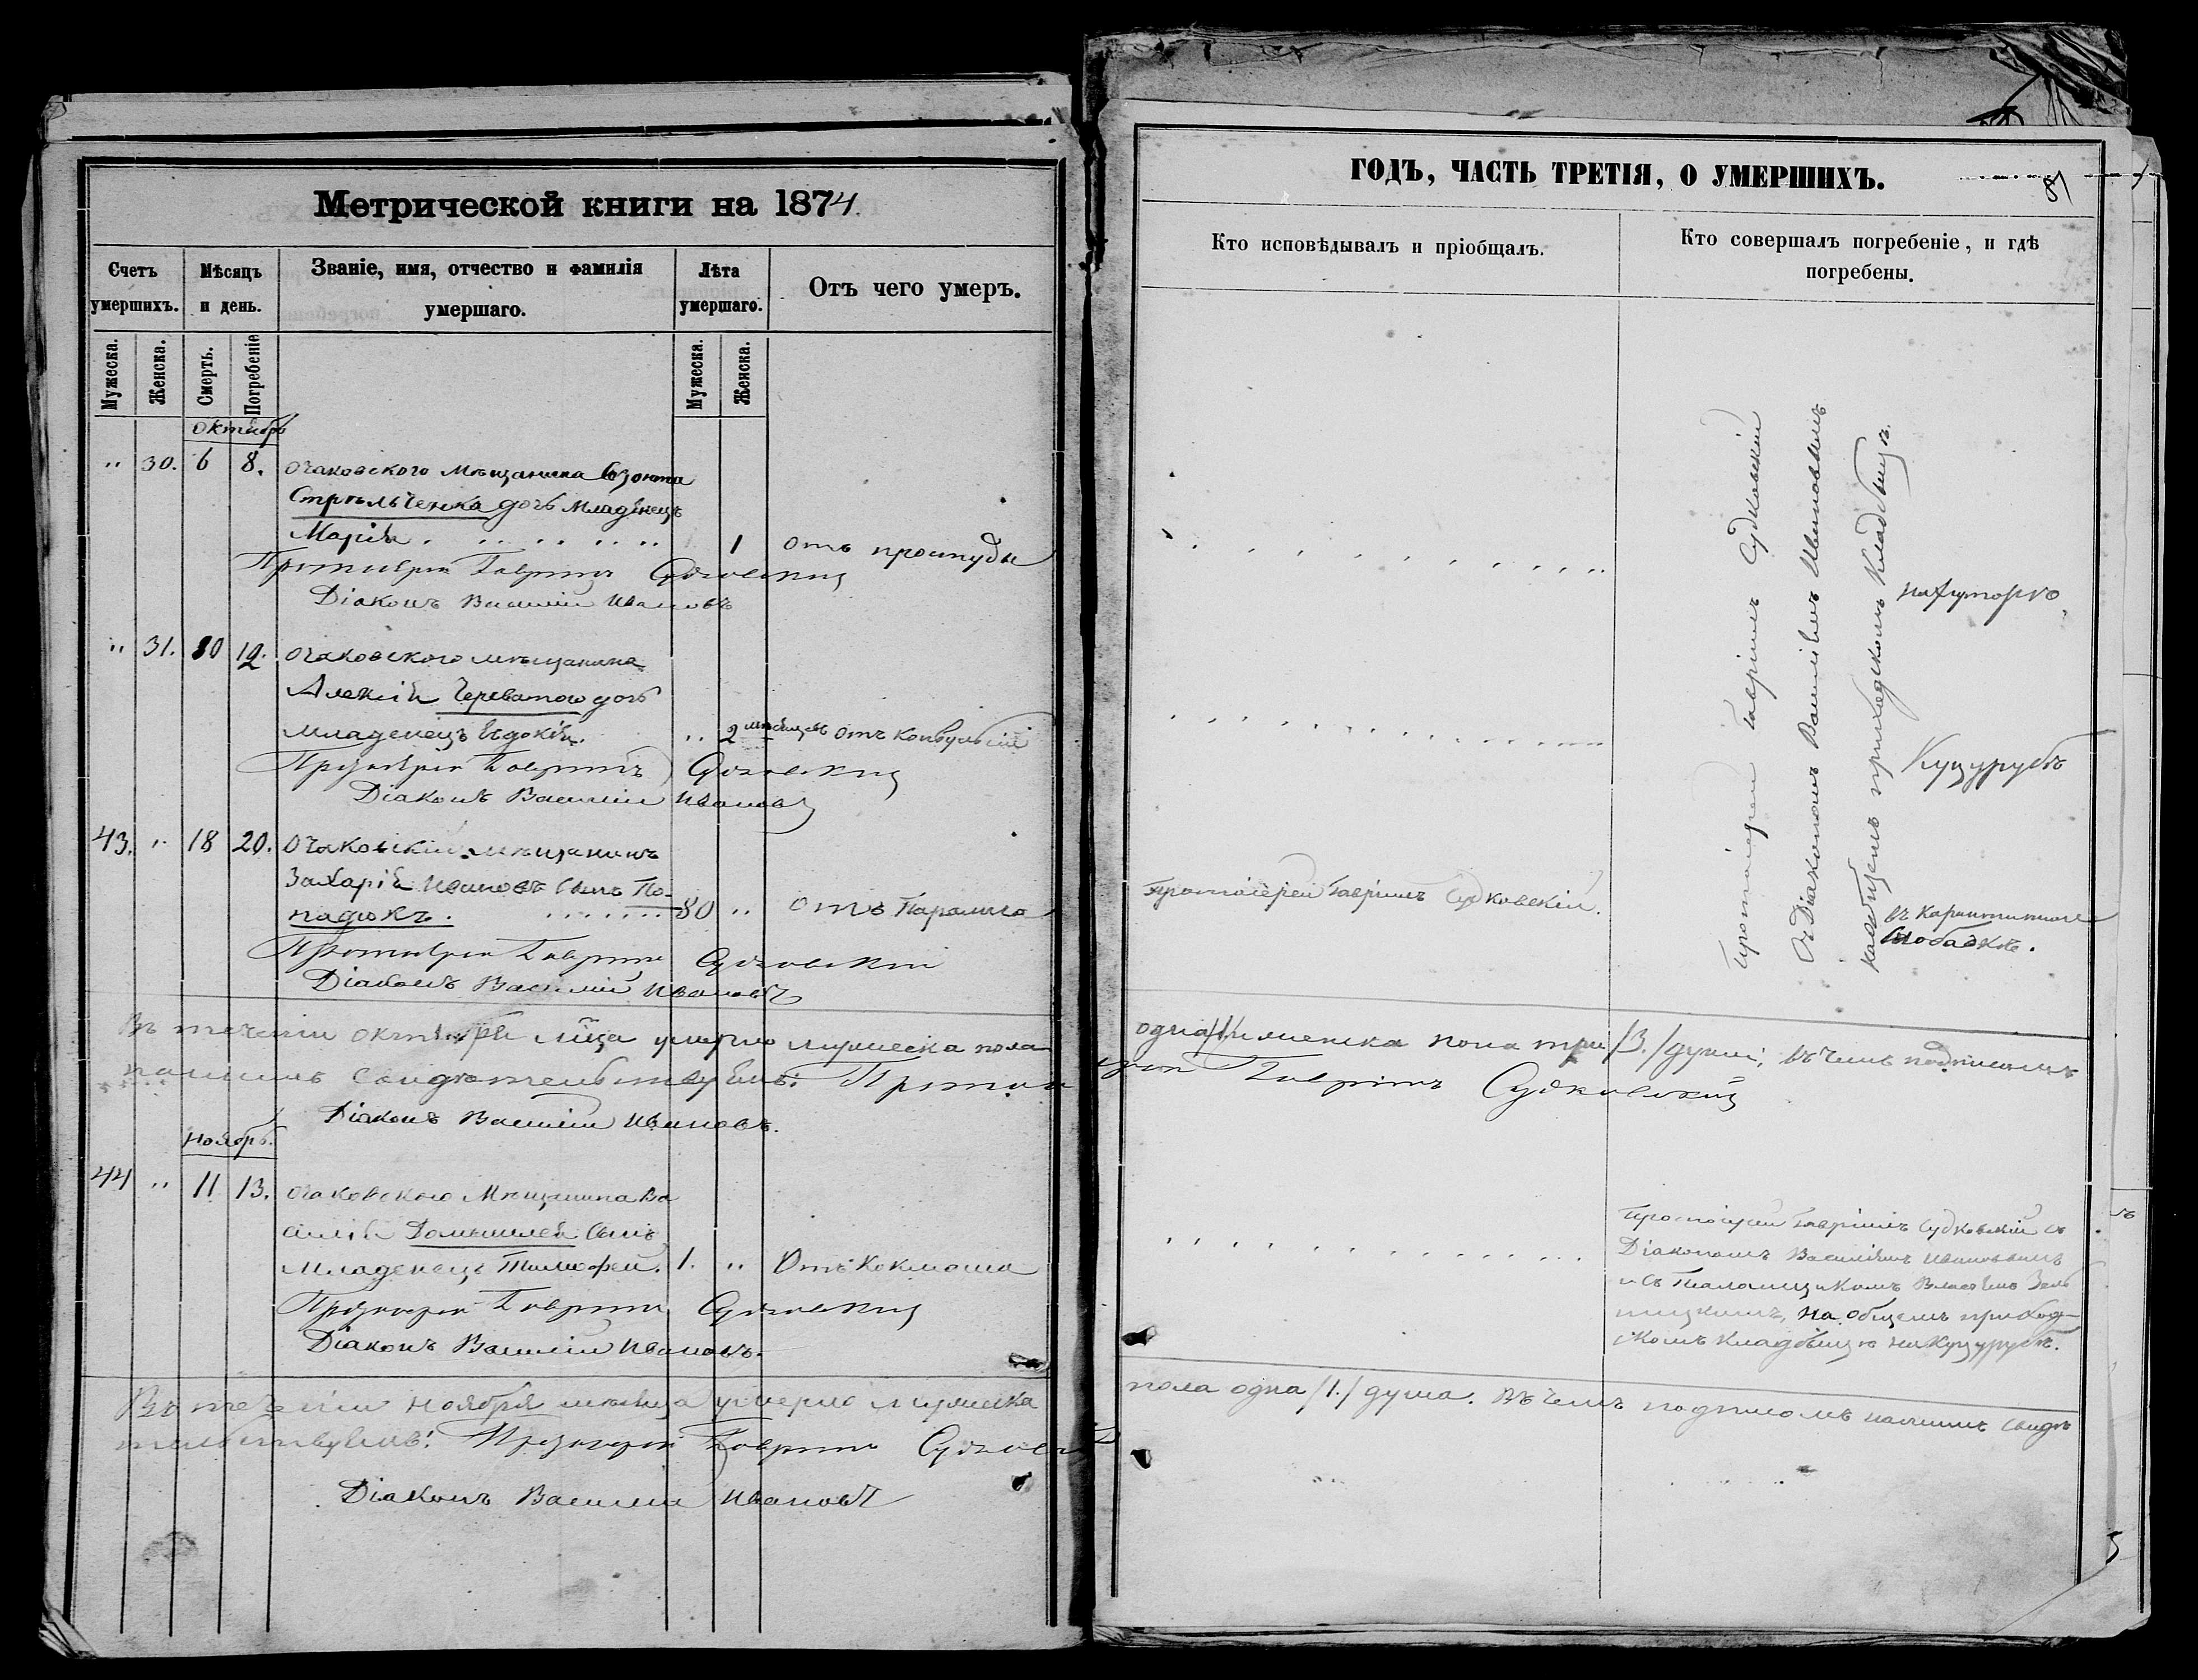 Метрической книги на 1874.
Счетъ умершихъ.
Мѣсяцъ и день.
Званіе, имя, отчество и фамилія умершаго.
Лѣта умершаго.
Отъ чего умеръ.
Мужеска.
Женска.
Смерть.
Погребеніе
Мужеска.
Женска.
Октябрь
" 30. 6 8. Очаковского мѣщанина
Стрѣльченка дочь младенецъ
Марія. 1 отъ простуды
Протоіерей Гавріилъ Судковскій
Діаконъ Василій Ивановъ
" 31. 10 12. Очаковского мѣщанина
Алексія Череватого дочь
младенецъ Евдокія. " 2 мѣсяцевъ отъ конвульсій
Протоіерей Гавріилъ Судковскій
Діаконъ Василій Ивановъ
43. " 18 20. Очаковскій мѣщанинъ
Захарій Ивановъ сынъ По-
надюкъ. 80 " отъ Паралича
Протоіерей Гавріилъ Судковскій
Діаконъ Василій Ивановъ
Въ теченіи октября мца умерло мужеска пола
нашимъ свидѣтельствуемъ: Протоі
Діаконъ Василій Ивановъ.
Ноябрь.
44 " 11 13. Очаковского Мѣщанина Ва
силія сынъ
Младенецъ Тимофей. 1. " Отъ Коклюша
Протоіерей Гавріилъ Судковскій
Діаконъ Василій Ивановъ.
Въ теченіи ноября мѣсяца умерло мужеска
тельствуемъ: Протоіерей Гавріилъ Судковскій
Діаконъ Василій Ивановъ
ГОДЪ, ЧАСТЬ ТРЕТІЯ, О УМЕРШИХЪ.
81
Кто исповѣдывалъ и пріобщалъ.
Кто совершалъ погребеніе, и гдѣ погребены.
Протоіерей Гавріилъ Судковскій
съ Діакономъ Василіемъ Ивановымъ
на общемъ приходскомъ кладбищѣ
на хуторѣ
Куцурубъ
Протоіерей Гавріилъ Судковскій.
въ карантинной
слободкѣ.
одна /1/ и женска пола три /3./ души; въ чемъ подписомъ
ерей Гавріилъ Судковскій
Протоіерей Гавріилъ Судковскій съ
Діакономъ Василіемъ Ивановымъ
и съ Псаломщикомъ
на общемъ приход-
скомъ кладбищѣ на Куцурубѣ.
пола одна /1./ душа. Въ чемъ подписомъ нашимъ свидѣ